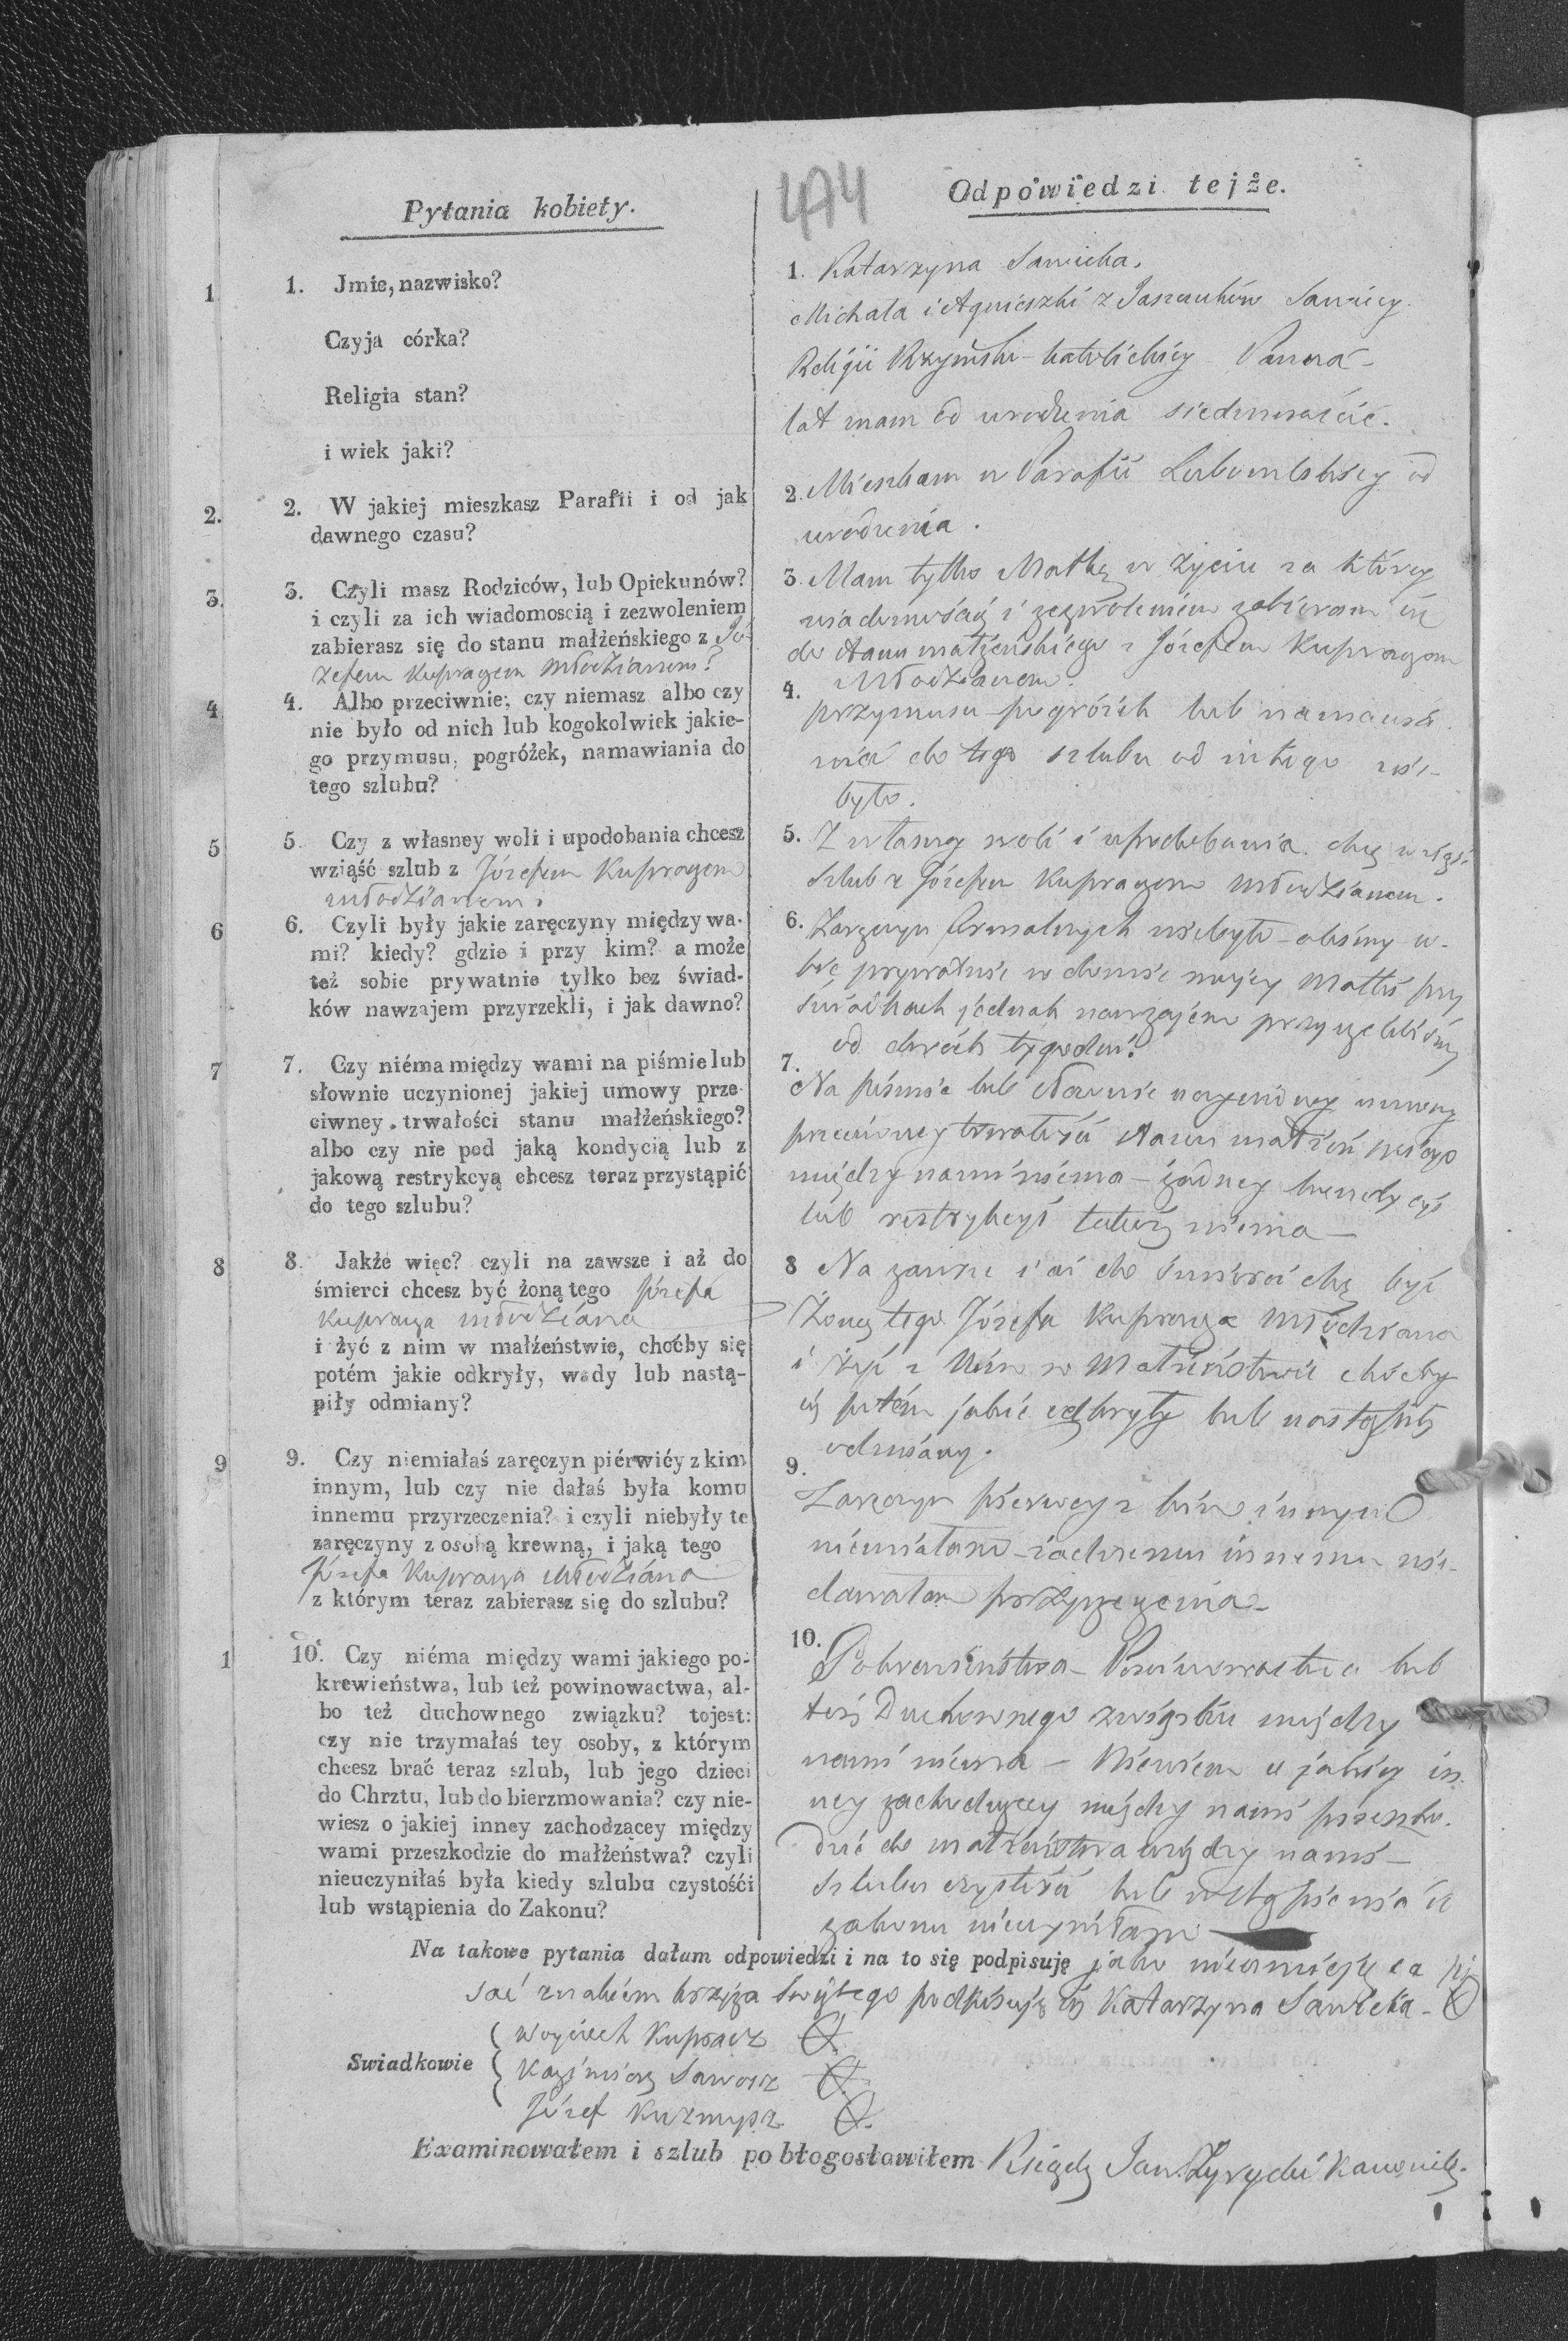 474
Pytania kobiety.
1
1. Jmie, nazwisko?
Czyja córka?
Religia stan?
i wiek jaki?
2.
2. W jakiej mieszkasz Parafii i od jak
dawnego czasu?
3.
3. Czyli masz Rodziców, lub Opiekunów?
i czyli za ich wiadomoscią i zezwoleniem
zabierasz się do stanu małżeńskiego z Jó-
zefem Kupragem Młodzianem?
4
4. Albo przeciwnie; czy niemasz albo czy
nie było od nich lub kogokolwiek jakie-
go przymusu, pogróżek, namawiania do
tego szlubu?
5
5. Czy z własney woli i upodobania chcesz
wziąść szlub z Józefem Kupragem
młodzianem?
6
6. Czyli były jakie zaręczyny między wa-
mi? kiedy? gdzie i przy kim? a może
też sobie prywatnie tylko bez świad-
ków nawzajem przyrzekli, i jak dawno?
7
7. Czy niéma między wami na piśmie lub
słownie uczynionej jakiej umowy prze-
ciwney trwałości stanu małżeńskiego?
albo czy nie pod jaką kondycią lub z
jakową restrykcyą chcesz teraz przystąpić
do tego szlubu?
8
8. Jakże więc? czyli na zawsze i aż do
śmierci chcesz być żoną tego Józefa
Kupraga młodziana
i żyć z nim w małżeństwie, choćby się
potém jakie odkryły, wady lub nastą-
piły odmiany?
9
9. Czy niemiałaś zaręczyn piérwiéy z kim
innym, lub czy nie dałaś była komu
innemu przyrzeczenia? i czyli niebyły te
zaręczyny z osobą krewną, i jaką tego
Józefa Kupraga Młodziana
z którym teraz zabierasz się do szlubu?
1
10. Czy niéma między wami jakiego po-
krewieństwa, lub też powinowactwa, al-
bo też duchownego związku? tojest:
czy nie trzymałaś tey osoby, z którym
chcesz brać teraz szlub, lub jego dzieci
do Chrztu, lub do bierzmowania? czy nie-
wiesz o jakiej inney zachodzącey między
wami przeszkodzie do małżeństwa? czyli
nieuczyniłaś była kiedy szlubu czystośći
lub wstąpienia do Zakonu?
Odpowiedzi tejże.
1. Katarzyna Sawicka.
Michała i Agnieszki z Sawicy.
Religii Rzymsko-katolickiey Panna-
lat mam od urodzenia siedmnaście.
2. Mieszkam w Parafii Lubomlskiey od
urodzenia.
3. Mam tylko Matkę w życiu za którey
wiadomością i zezwoleniem zabieram się
do stanu małżeńskiego z Józefem Kupragem
Młodzianem.
4. przymusu pogróżek lub namawia
nia do tego szlubu od nikogo nie-
było.
5. Z własney woli i upodobania chcę wziąść
szlub z Józefem Kupragem Młodzianem.
6. Zaręczyn formalnych niebyło - obiśmy
prywatnie w domie mojey Matki przy
świadkach jednak nawzajem przyrzekliśmy
od dwóch tygodni.
7. Na piśmie lub słownie uczynioney umowy
przeciwney trwałości stanu małżeńskiego
między nami niéma - żadney kondycyi
lub restrykcyi także niema -
8 Na zawsze i aż do śmierci chcę być
Żoną tego Józefa Kupraga Młodziana
i żyć z Nim w Małżeństwie choćby
się potém jakie odkryły lub nastąpiły
odmiany.
9. Zaręczyn pierwey z kim innym
niemiałam - żadnemu innemu nie-
dawałam przyrzeczenia -
10. Pokrewieństwa - Powinowactwa lub
też Duchownego związku między
nami niema - Niewiem o jakiey in-
ney zachodzącey między nami przeszko-
dzie do małżeństwa między nami -
szlubu czystości lub wstąpienia do
zakonu nieuczyniłam
Na takowe pytania dałam odpowiedzi i na to się podpisuję jako nieumiejęca pi
sać znakiem krzyża świętego podpisuję się Katarzyna Sawicka -
Swiadkowie
Woyciech Kupracz
Kazimierz Saworz
Józef Kuzmysz
Examinowałem i szlub pobłogosławiłem Ksiądz Jan Kanonik